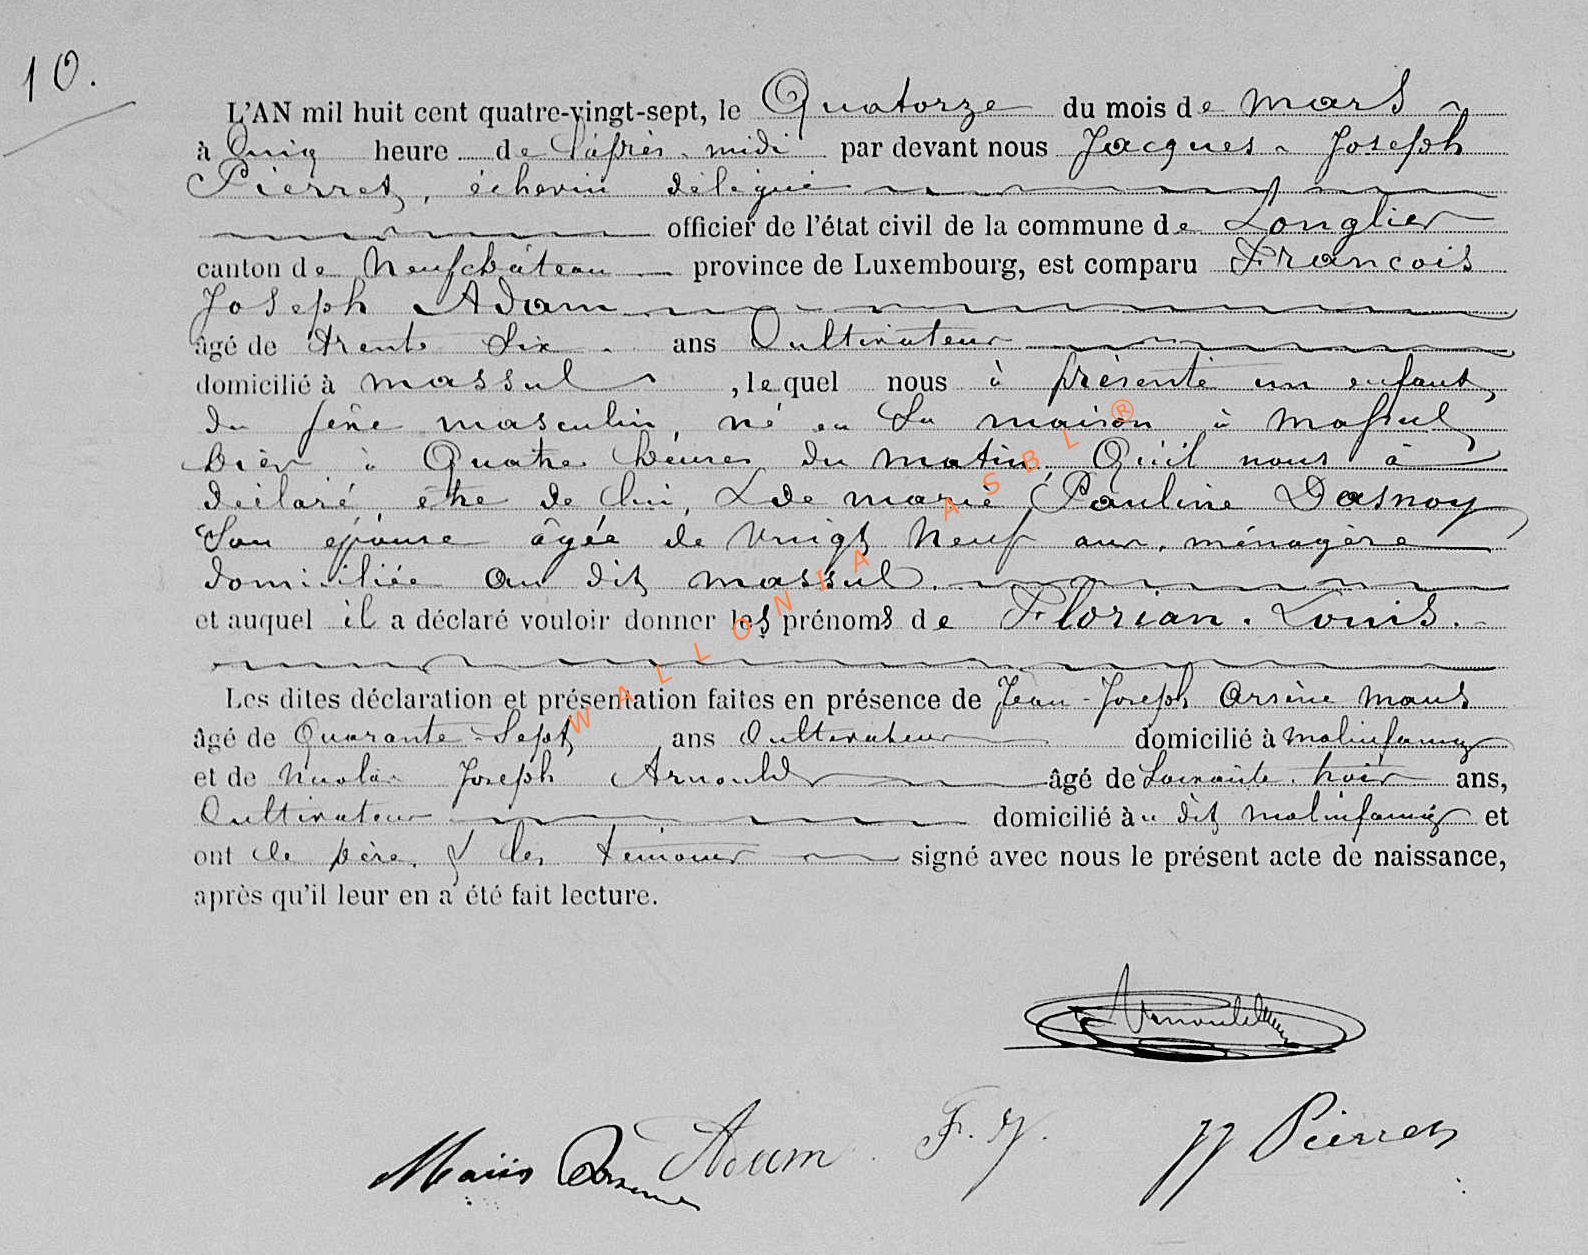 10.
L'AN mil huit cent quatre-vingt-sept, le Quatorze du mois de mars
à Cinq heure de l'après-midi par devant nous Jacques-Joseph
Pierret, échevin délégué
officier de l'état civil de la commune de Longlier
canton de Neufchâteau province de Luxembourg, est comparu Francois
Joseph Adam
âgé de trente Six ans Cultivateur
domicilié à massul, lequel nous à présenté un enfant,
du sexe masculin, né en Sa maison à Massul
hièr à Quatre heures du matin, Qu'il nous à
déclaré être de lui, & de marie Pauline Dasnoy
Son épouse âgée de vingt Neuf ans, ménagère
domiciliée au dit massul.
et auquel il a déclaré vouloir donner les prénoms de Florian. Louis.
Les dites déclaration et présentation faites en présence de Jean-Joseph Arsène Maus
âgé de Quarante-Sept ans Cultivateur domicilié à molinfaing
et de Nicolas Joseph Arnould âgé de Soixante-trois ans,
Cultivateur domicilié àu dit molinfaing et
ont le père & les témoins signé avec nous le présent acte de naissance,
après qu'il leur en a été fait lecture.
Arnould
Maus Arsène Adam F. J. JJ Pierret
WALLONIA ASBL ®